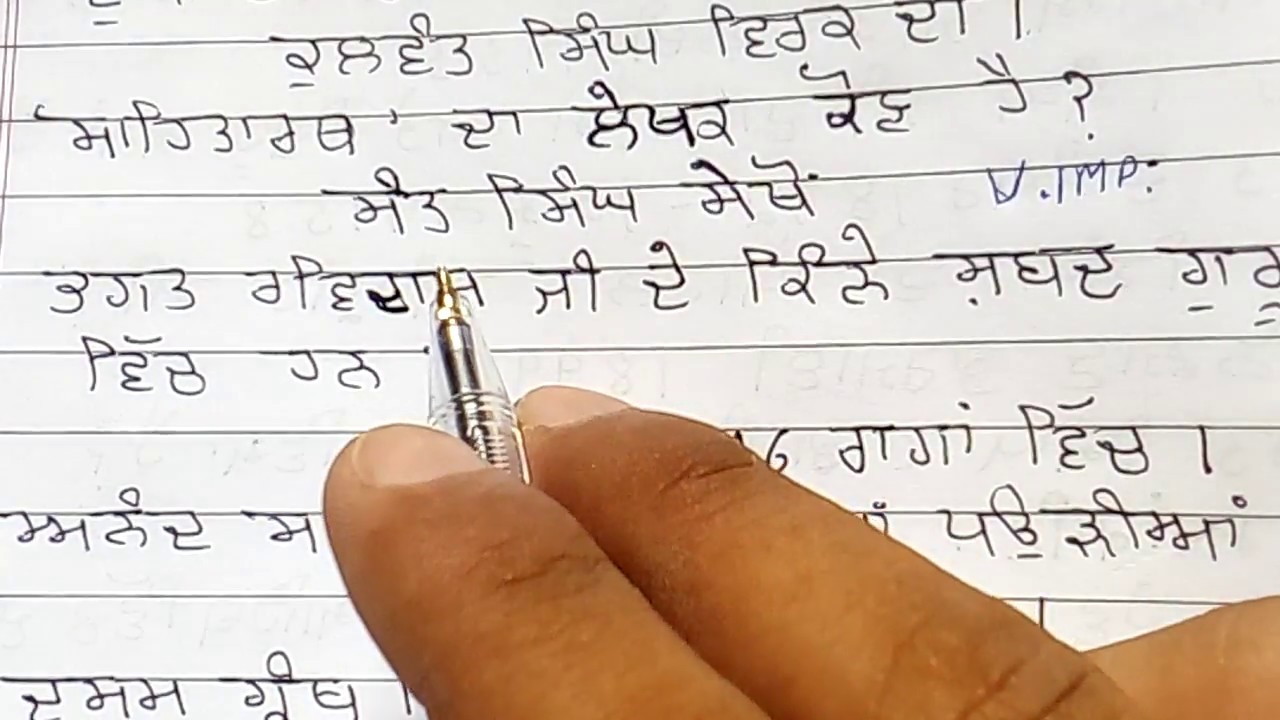 ਕੁਲਵੰਤ ਸਿੰਘ ਵਿਰਕ ਦਾ ।
'ਸਾਹਿਤਾਰਥ' ਦਾ ਲੇਖਕ ਕੌਣ ਹੈ ?
ਸੰਤ ਸਿੰਘ ਸੇਖੋਂ V.IMP.
ਭਗਤ ਰਵਿਦਾਸ ਜੀ ਦੇ ਕਿੰਨੇ ਸ਼ਬਦ ਗੁਰੂ
ਵਿੱਚ ਹਨ
16 ਰਾਗਾਂ ਵਿੱਚ ।
ਅਨੰਦ ਸ ਪਉੜੀਆਂ
ਦਸਮ ਗ੍ਰੰਥ ।